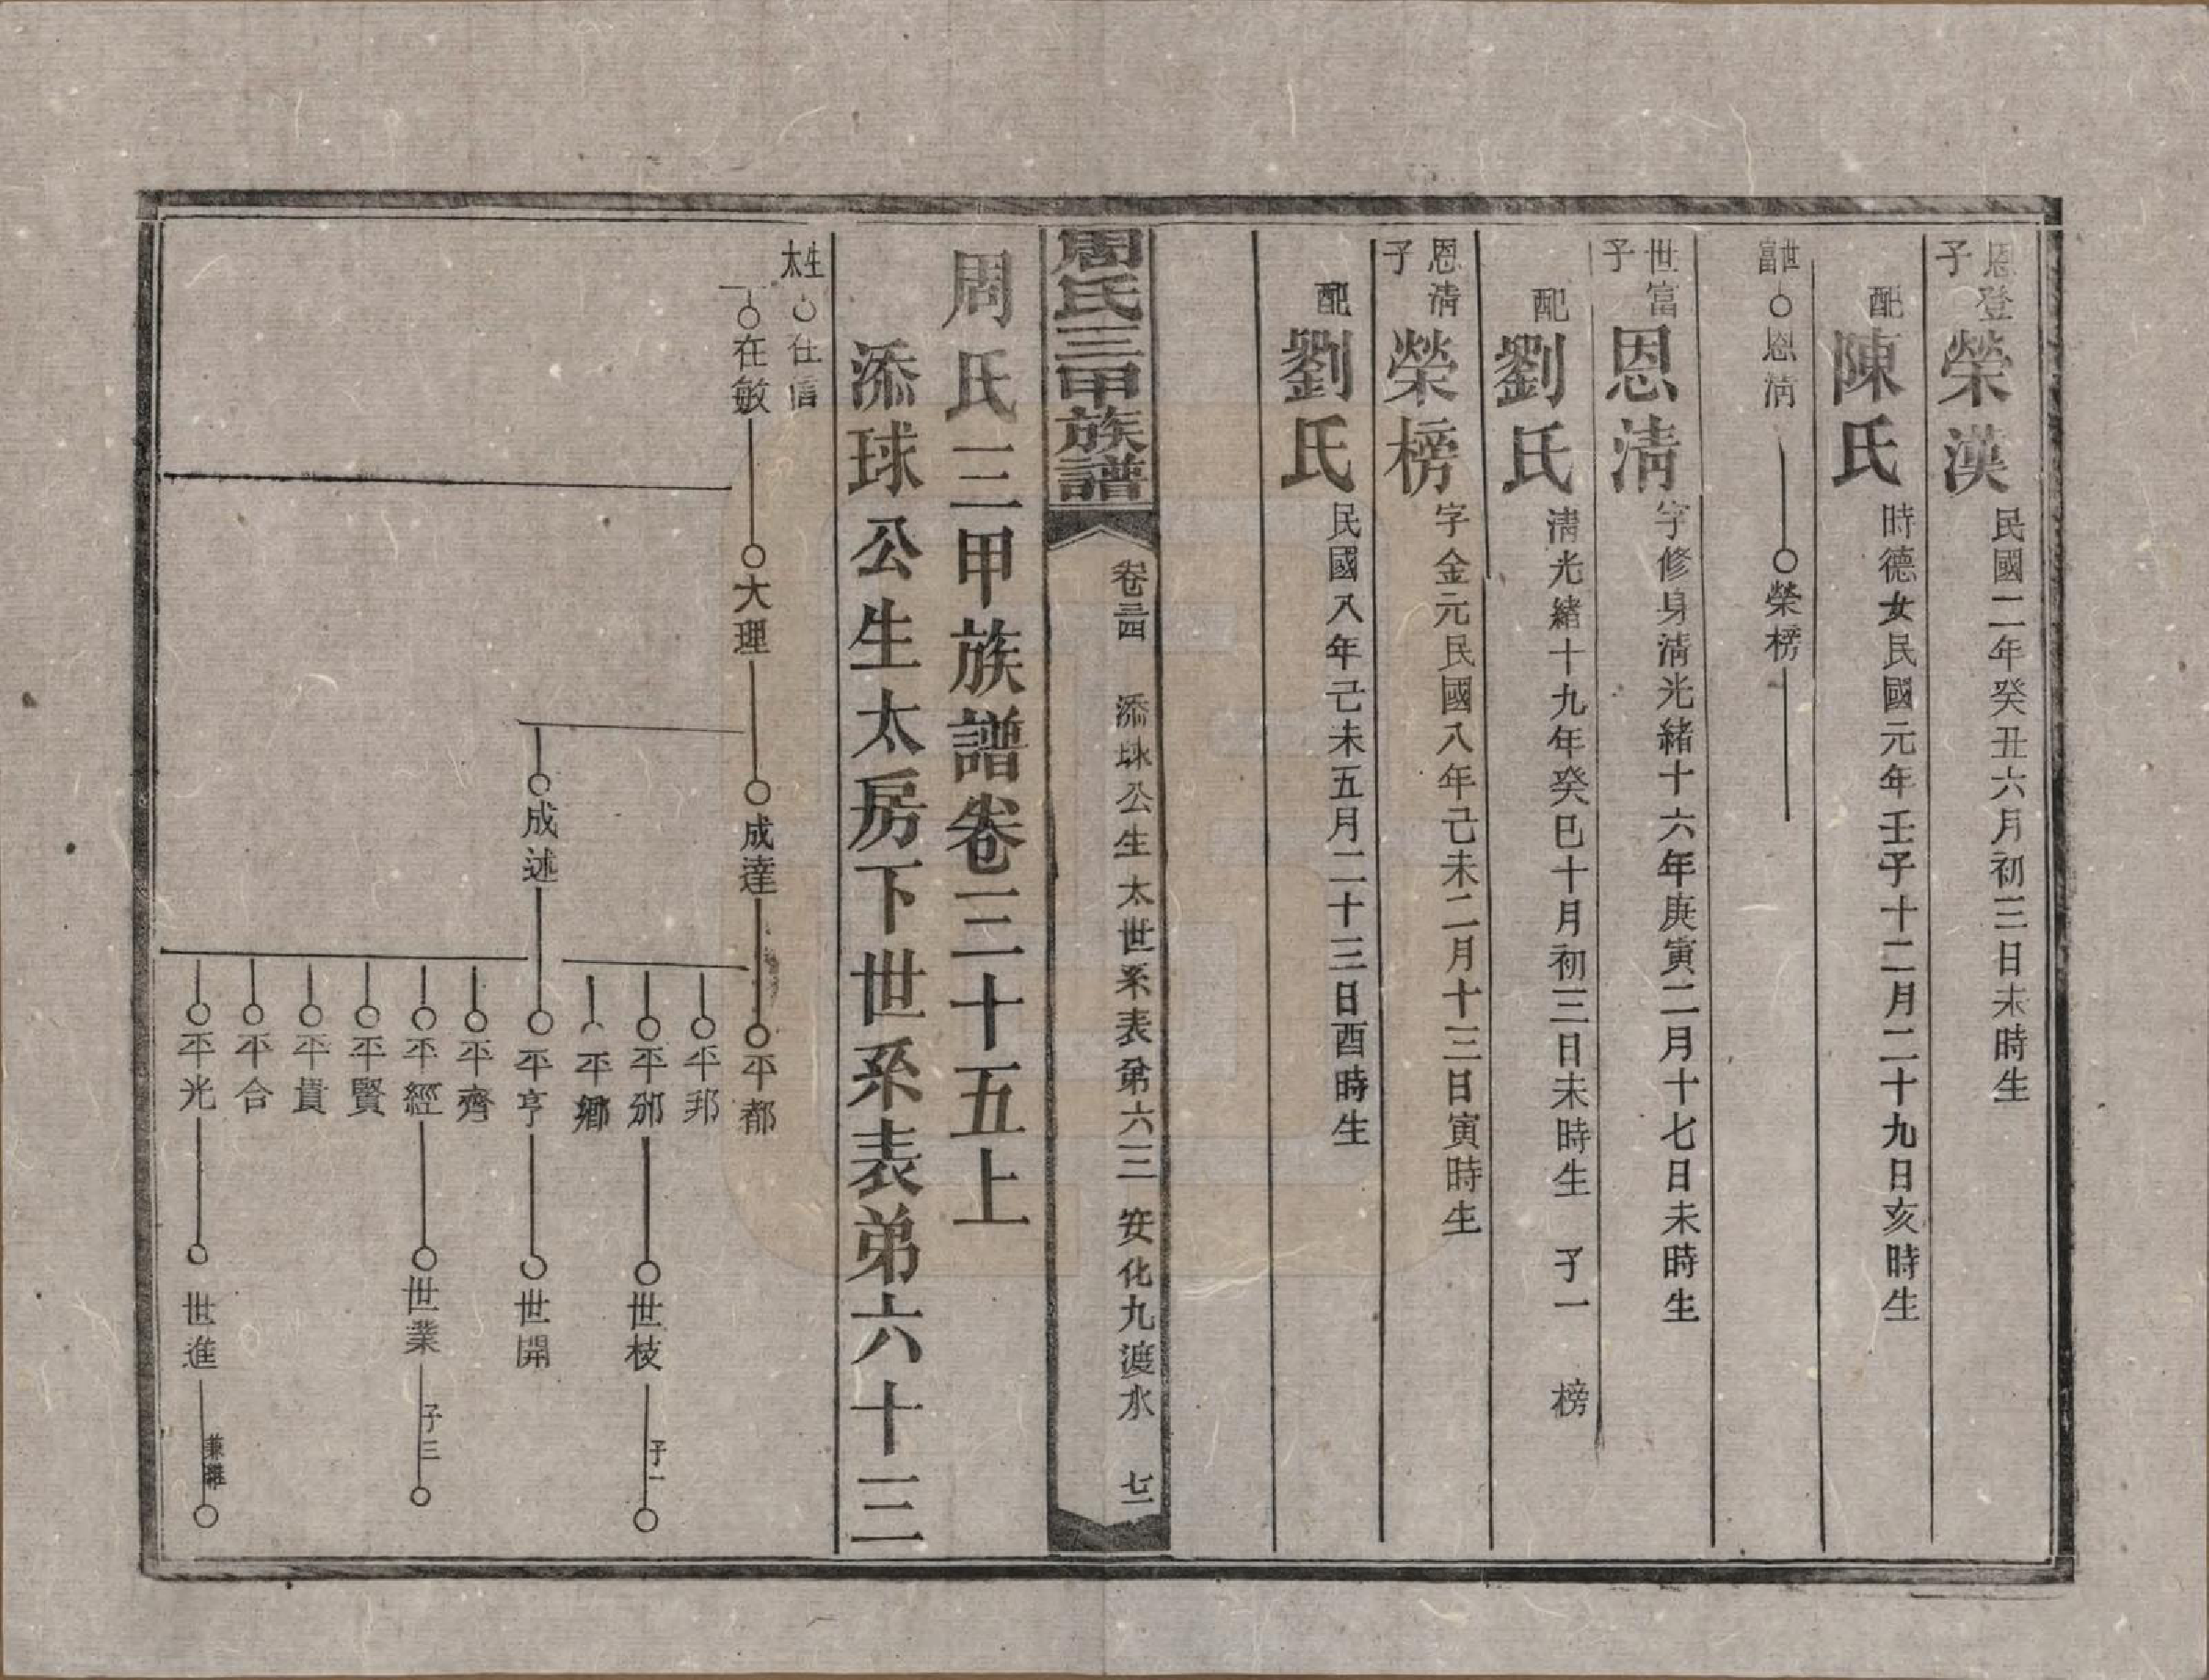 恩登子 榮漢 民國二年癸丑六月初三日未時生
配 陳氏 時德女民國元年壬子十二月二十九日亥時生
世富 恩清 榮榜
世富子 恩清 字修身清光緒十六年庚寅二月十七日未時生
配 劉氏 清光緒十九年癸巳十月初三日未時生 子一 榜
恩清子 榮榜 字金元民國八年己未二月十三日寅時生
配 劉氏 民國八年己未五月二十三日酉時生
周氏三甲族譜 卷三四 添球公生太世系表弟六三 安化九渡水 七二
周氏三甲族譜卷三十五上
添球公生太房下世系表弟六十三
生太 在信
在敏 大理 成達 平都
平邦
平邠 世枝 子一
平鄉
成述 平亨 世開
平齊
平經 世業 子三
平賢
平貴
平合
平光 世進 兼祧